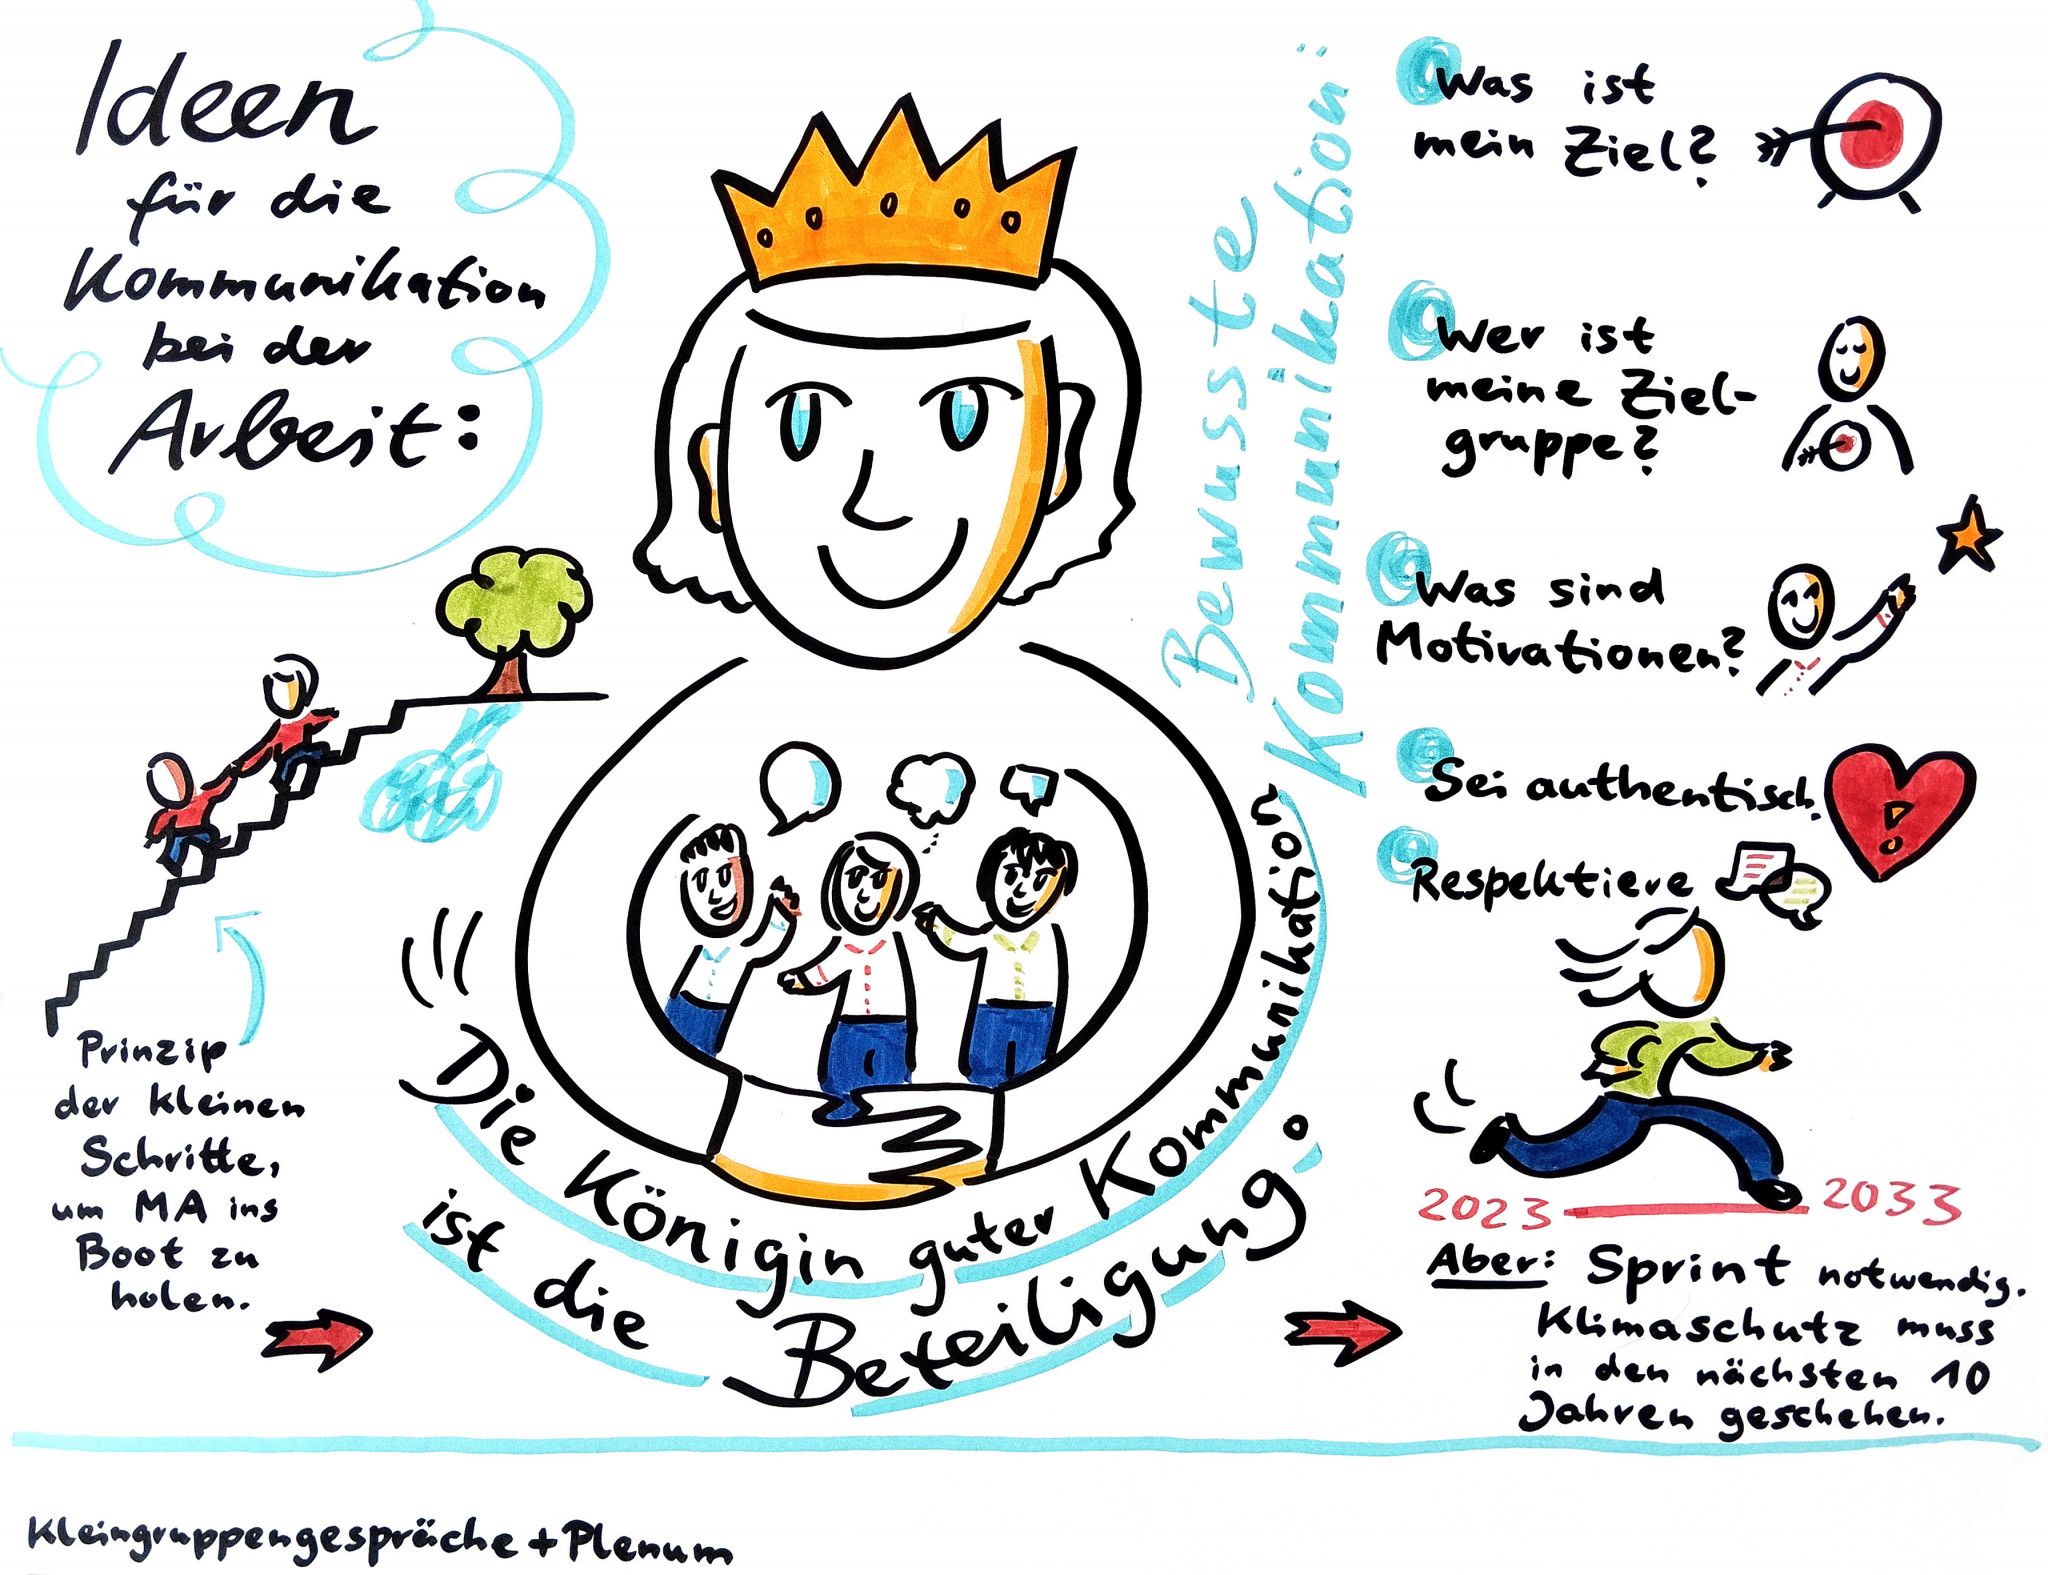 Ideen
für die
Kommunikation
bei der
Arbeit:
Prinzip
der kleinen
Schritte,
um MA ins
Boot zu
holen.
Die Königin guter Kommunikation
ist die Beteiligung.
Bewusste
Kommunikation:
Was ist
mein Ziel?
Wer ist
meine Ziel-
gruppe?
Was sind
Motivationen?
Sei authentisch.
!
Respektiere
2023 2033
Aber: Sprint notwendig.
Klimaschutz muss
in den nächsten 10
Jahren geschehen.
Kleingruppengespräche + Plenum